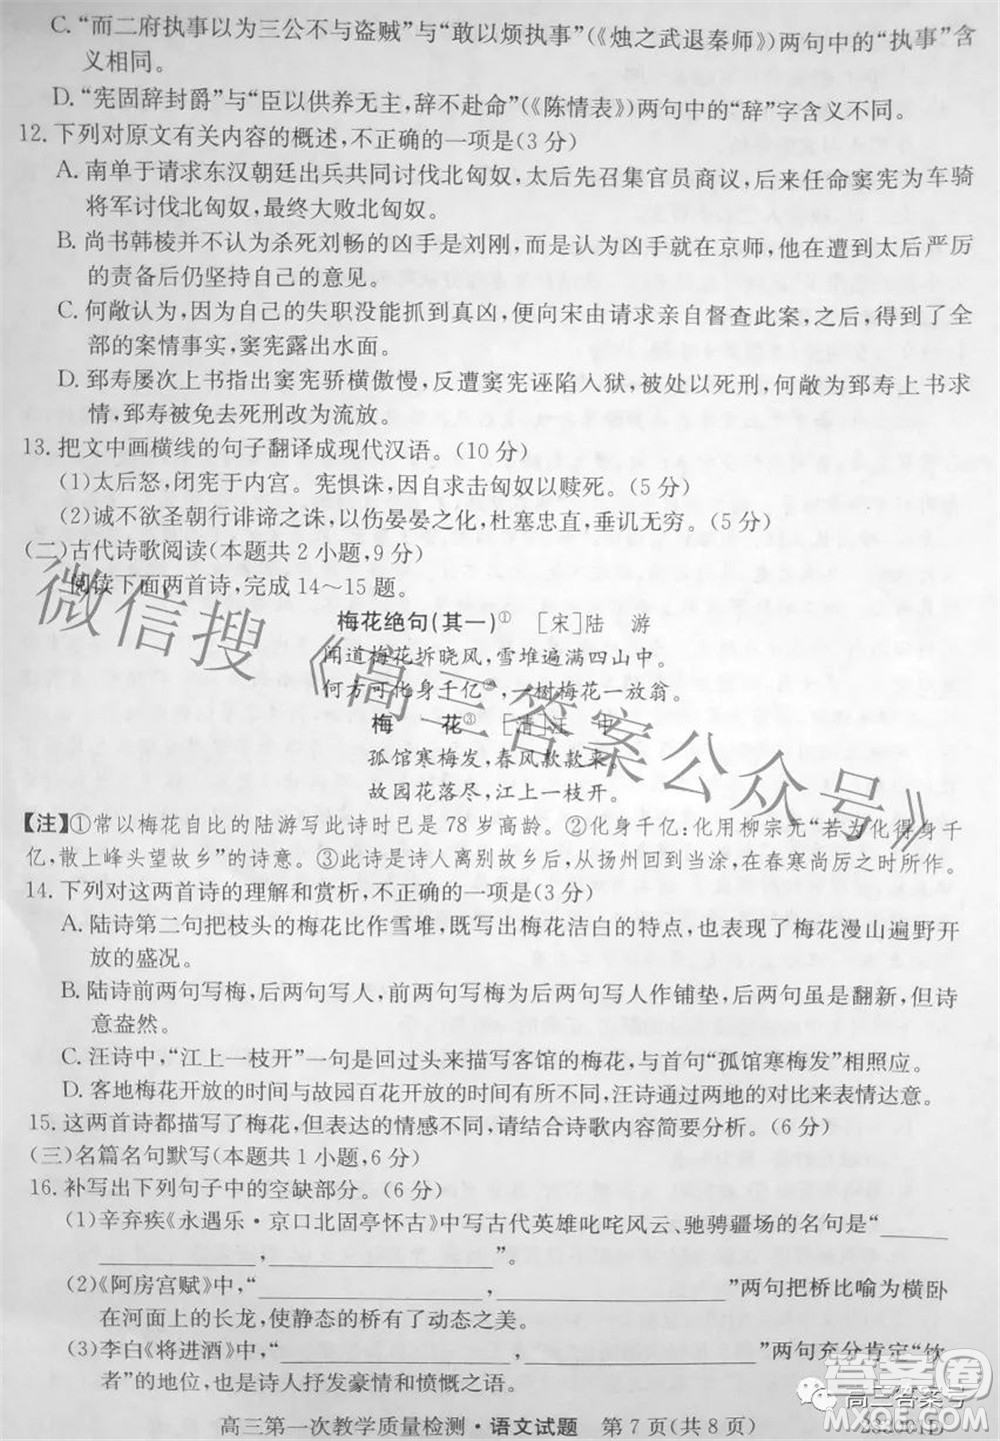 C. “而二府执事以为三公不与盗贼”与“敢以烦执事”(《烛之武退秦师》)两句中的“执事”含
义相同。
D. “宪固辞封爵”与“臣以供养无主，辞不赴命”(《陈情表》)两句中的“辞”字含义不同。
12. 下列对原文有关内容的概述，不正确的一项是(3 分)
A. 南单于请求东汉朝廷出兵共同讨伐北匈奴，太后先召集官员商议，后来任命窦宪为车骑
将军讨伐北匈奴，最终大败北匈奴。
B. 尚书韩棱并不认为杀死刘畅的凶手是刘刚，而是认为凶手就在京师，他在遭到太后严厉
的责备后仍坚持自己的意见。
C. 何敞认为，因为自己的失职没能抓到真凶，便向宋由请求亲自督查此案，之后，得到了全
部的案情事实，窦宪露出水面。
D. 郅寿屡次上书指出窦宪骄横傲慢，反遭窦宪诬陷入狱，被处以死刑，何敞为郅寿上书求
情，郅寿被免去死刑改为流放。
13. 把文中画横线的句子翻译成现代汉语。(10 分)
(1)太后怒，闭宪于内宫。宪惧诛，因自求击匈奴以赎死。(5 分)
(2)诚不欲圣朝行诽谤之诛，以伤晏晏之化，杜塞忠直，垂讥无穷。(5 分)
(二)古代诗歌阅读(本题共 2 小题，9 分)
阅读下面两首诗，完成 14～15 题。
梅花绝句(其一)① [宋]陆 游
闻道梅花坼晓风，雪堆遍满四山中。
何方可化身千亿②，一树梅花一放翁。
梅 花③ [清]汪 中
孤馆寒梅发，春风款款来。
故园花落尽，江上一枝开。
【注】①常以梅花自比的陆游写此诗时已是 78 岁高龄。②化身千亿：化用柳宗元“若为化得身千
亿，散上峰头望故乡”的诗意。③此诗是诗人离别故园后，从扬州回到当涂，在春寒尚厉之时所作。
14. 下列对这两首诗的理解和赏析，不正确的一项是(3 分)
A. 陆诗第二句把枝头的梅花比作雪堆，既写出梅花洁白的特点，也表现了梅花漫山遍野开
放的盛况。
B. 陆诗前两句写梅，后两句写人，前两句写梅花为写人作铺垫，后两句虽是翻新，但诗
意盎然。
C. 汪诗中，“江上一枝开”一句是回过头来描写客馆的梅花，与首句“孤馆寒梅发”相照应。
D. 客地梅花开放的时间与故园百花开放的时间不同，汪诗通过两地的对比来表情达意。
15. 这两首诗都描写了梅花，但表达的情感不同，请结合诗歌内容分析。(6 分)
(三)名篇名句默写(本题共 1 小题，6 分)
16. 补写出下列句子中的空缺部分。(6 分)
(1)辛弃疾《永遇乐·京口北固亭怀古》中写古代英雄叱咤风云、驰骋疆场的名句是“
，”。
(2)《阿房宫赋》中，“，”两句把桥比喻为横卧
在河面上的长龙，使静态的桥有了动态之美。
(3)李白《将进酒》中，“，”两句充分肯定“饮
者”的地位，也是诗人抒发豪情和愤慨之语。
高三第一次教学质量检测·语文试题 第 7 页(共 8 页)
微信搜《高三答案公众号》
高三答案号
答案圈